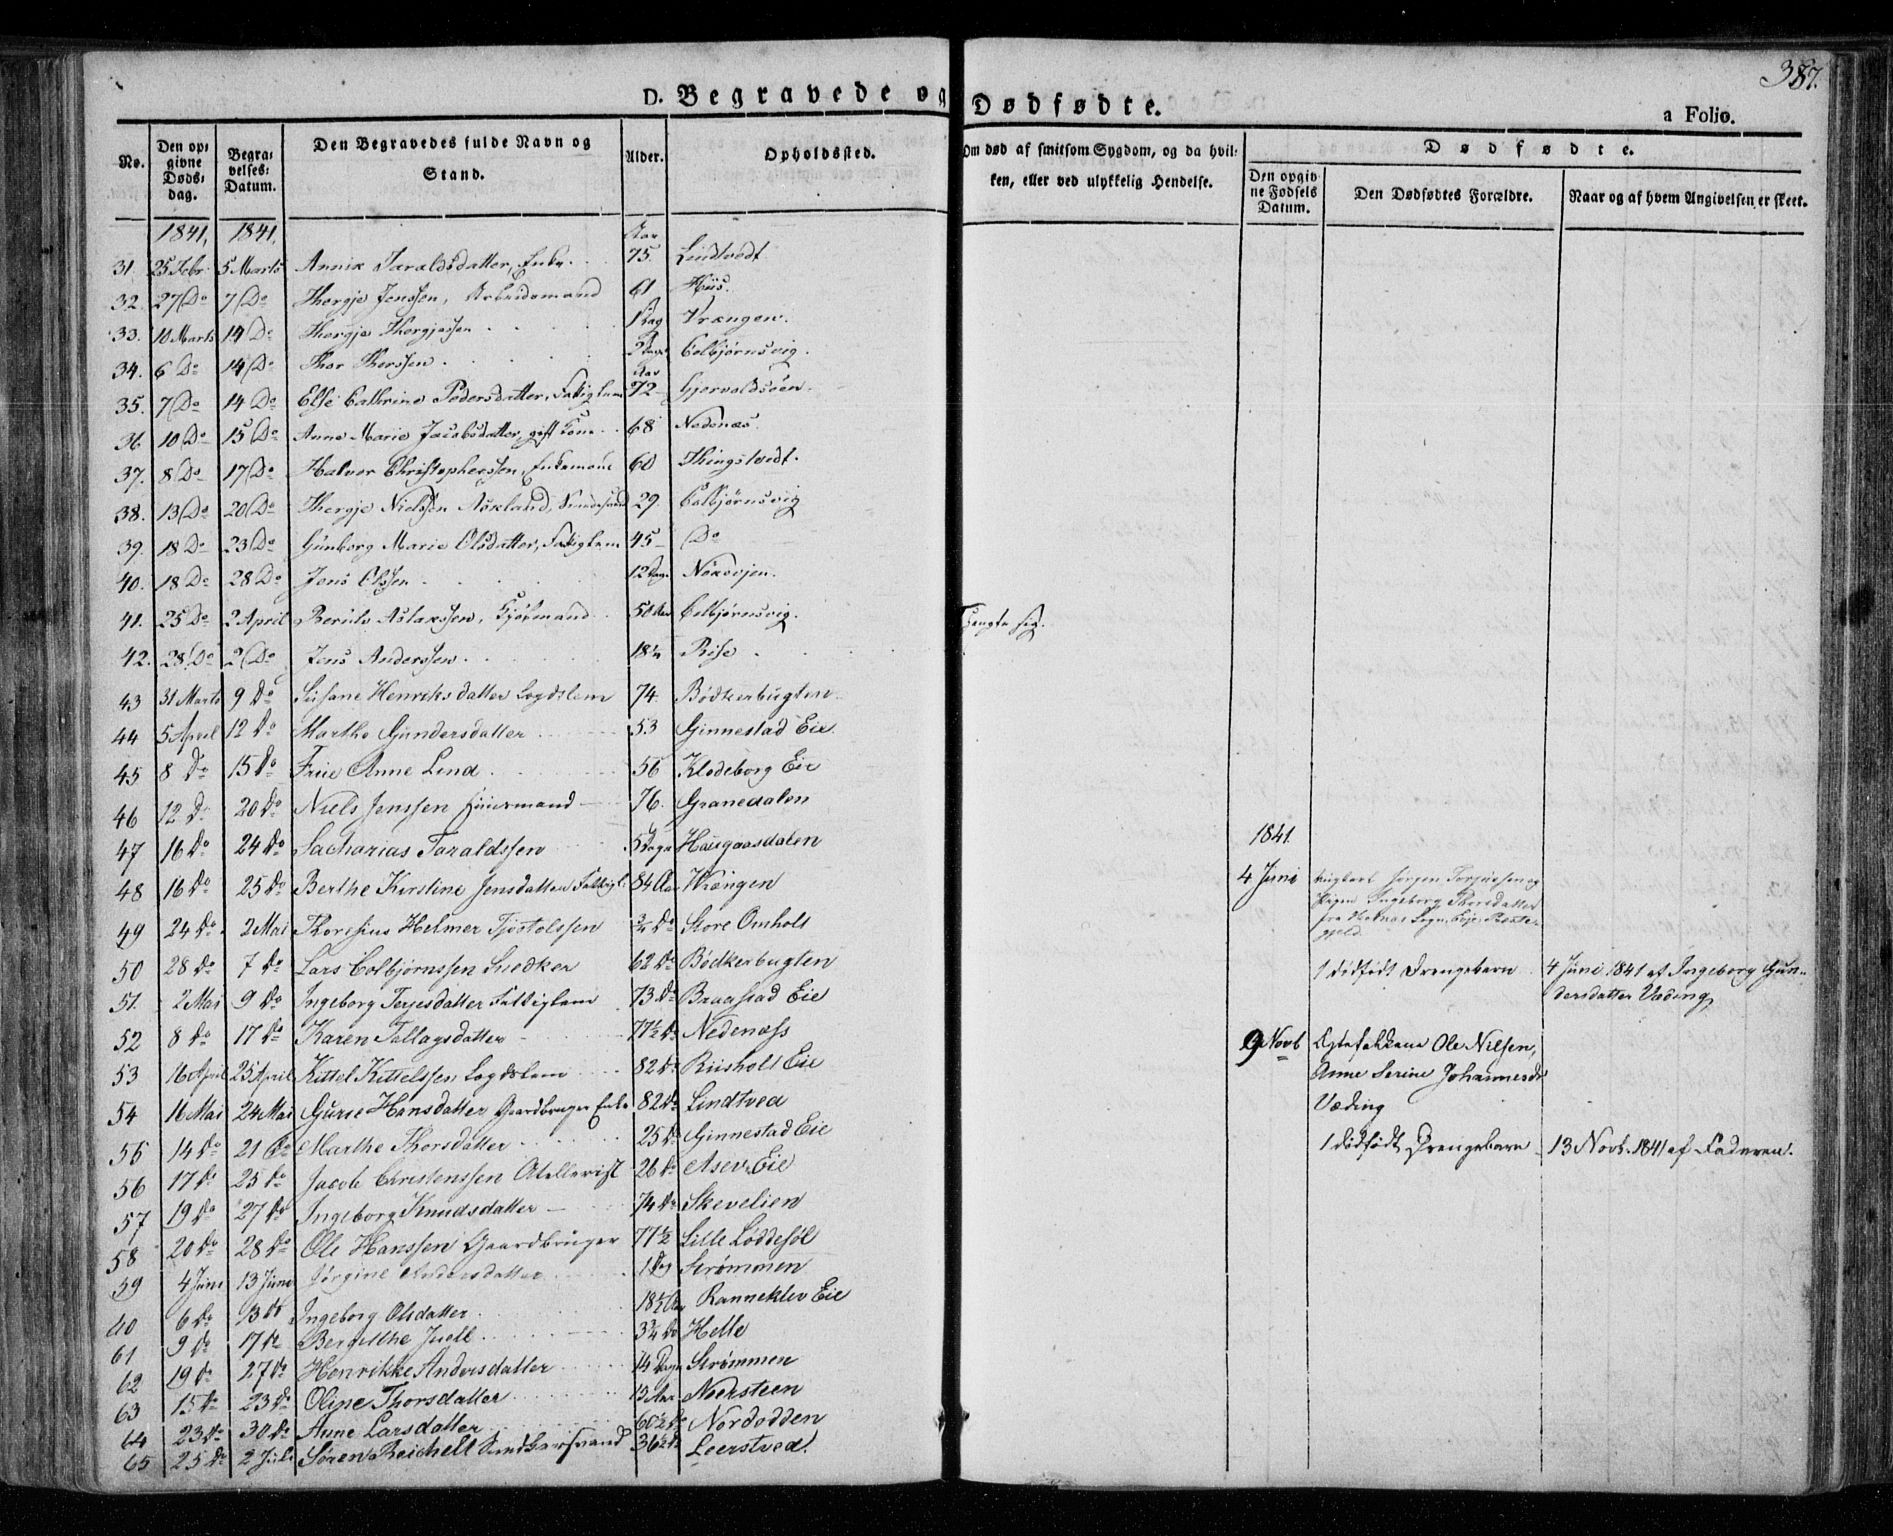 387.
D. Begravede og Dødfødte.
a Folio.
No. | Den opgivne Dødsdag. | Begravelses-Datum. | Den Begravedes fulde Navn og Stand. | Alder. | Opholdssted. | Om død af smitsom Sygdom, og da hvilken, eller ved ulykkelig Hendelse.
Dødfødte.
Den opgivne Fødsels Datum. | Den Dødfødtes Forældre. | Naar og af hvem Angivelsen er skeet.
1841, 1841, Aar
31. 25 Febr. 5 Marts Annie Taraldsdatter, Enke. 75. Lindtvedt
32. 27 Do 7 Do Thergje Jenssen, Arbeidsmand 61 Hiis.
33. 10 Marts 14 Do Thergje Thergjessen 1 Dag Vrængen.
34. 6 Do 14 Do Thor Thorssen. 3 Dage Colbjørnsvig.
Aar
35. 7 Do 14 Do Else Cathrine Pedersdatter, Fattiglem 72 Gjervoldsöen
36 10 Do 15 Do Anne Marie Jacobsdatter, gift Kone 68 Nedenæs.
37. 8 Do 17 Do Halvor Christophersen, Enkemand 60 Thingstvedt.
38. 13 Do 20 Do Thergje Nielssen Askland, 29. Colbjørnsvig
39. 18 Do 23 Do Günborg Marie Olsdatter, Fattiglem 45 Do
40. 18 Do 28 Do Jens Olssen 12 Dage
41. 25 Do 2 April Berulv Aslakssen, 50 Aar Colbjørnsvig. Hængte sig.
42. 28 Do 2 Do Jens Anderssen 18 Rise
43 31 Marts 9 Do Susane Henriksdatter Legdslem 74. Bødkerbugten
44 5 April 12 Do Marthe Gundersdatter 53 Ginnestad Eie.
45 8 Do 15 Do Frue Anne Lind 56 Klodeborg Eie
46 12 Do 20 Do Niels Jenssen Huusmand 76. Granedalen
47 16 Do 24 Do Sacharias Taraldssen 5 Dage Haugaasdalen
48 16 Do 25 Do Berthe Kirstine Jensdatter Fattigl. 84 Aar Vrængen
49 24 Do 2 Mai Thoresius Helmer Tjøstolssen 3/4 Do Store Omholt
50 28 Do 7 Do Lars Colbjørnssen Snedker 62 Do Bødkerbugten
51. 2 Mai 9 Do Ingeborg Terjesdatter Fattiglem 73 Do Braastad Eie
52 8 Do 17 Do Karen Tallagsdatter 77½ Do Nedenæss
53 16 April 25 April Kittel Kittelssen Legdslem 82 Do Riisholt Eie
54 16 Mai 24 Mai Gurie Hansdatter Gaardbruger Enke 82 Do Lindtved
55 14 Do 21 Do Marthe Thorsdatter 25 Do Ginnestad Eie
56 17 Do 25 Do Jacob Christenssen Atellerist 26 Do Asev Eie
57 19 Do 27 Do Ingeborg Knudsdatter 74 Do Skevelien
58 20 Do 28 Do Ole Hanssen Gaardbruger 77½ Lille Löddesöl
59 4 Juni 13 Juni Jörgine Andersdatter 1 Dag Strømmen
60 6 Do 13 Do Ingeborg Olsdatter 18½ Aar Rannekleiv Eie
61 9 Do 17 Do Bergithe Juell 3¾ Do Helle
62 19 Do 27 Do Henrikke Andersdatter 14 Dage Strømmen
63 15 Do 23 Do Oline Thorsdatter 13 Aar Neersteen
64 23 Do 30 Do Anne Larsdatter 60½ Do Nordodden
65 25 Do 2 Juli Søren Reichelt 36½ Do Leerstved.
1841.
4 Juni Ungkarl Jørgen Terjussen og
Pigen Ingeborg Thorsdatter
fra Sogn,
gjeld.
1 dødfödt Drengebarn 4 Juni 1841 af Ingeborg Gun-
dersdatter Væding
9 Novb Egtefolkene Ole Nilsen,
Anne Serine Johannesdr
Væding
1 dödfödt Drengebarn 13 Novb. 1841 af Faderen.